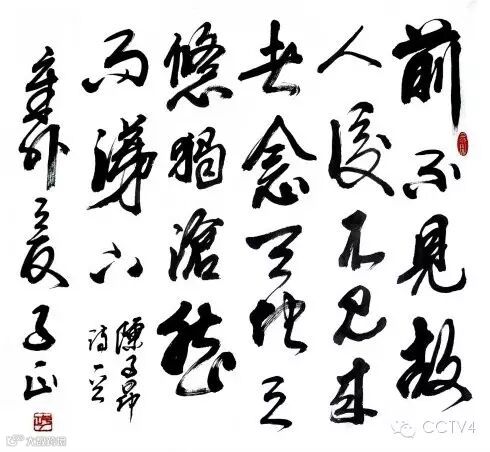 前不見故
人後不見来
者念天地之
悠獨滄然
而涕下
陳子昂
詩一首
辛卯之夏 子正
CCTV4